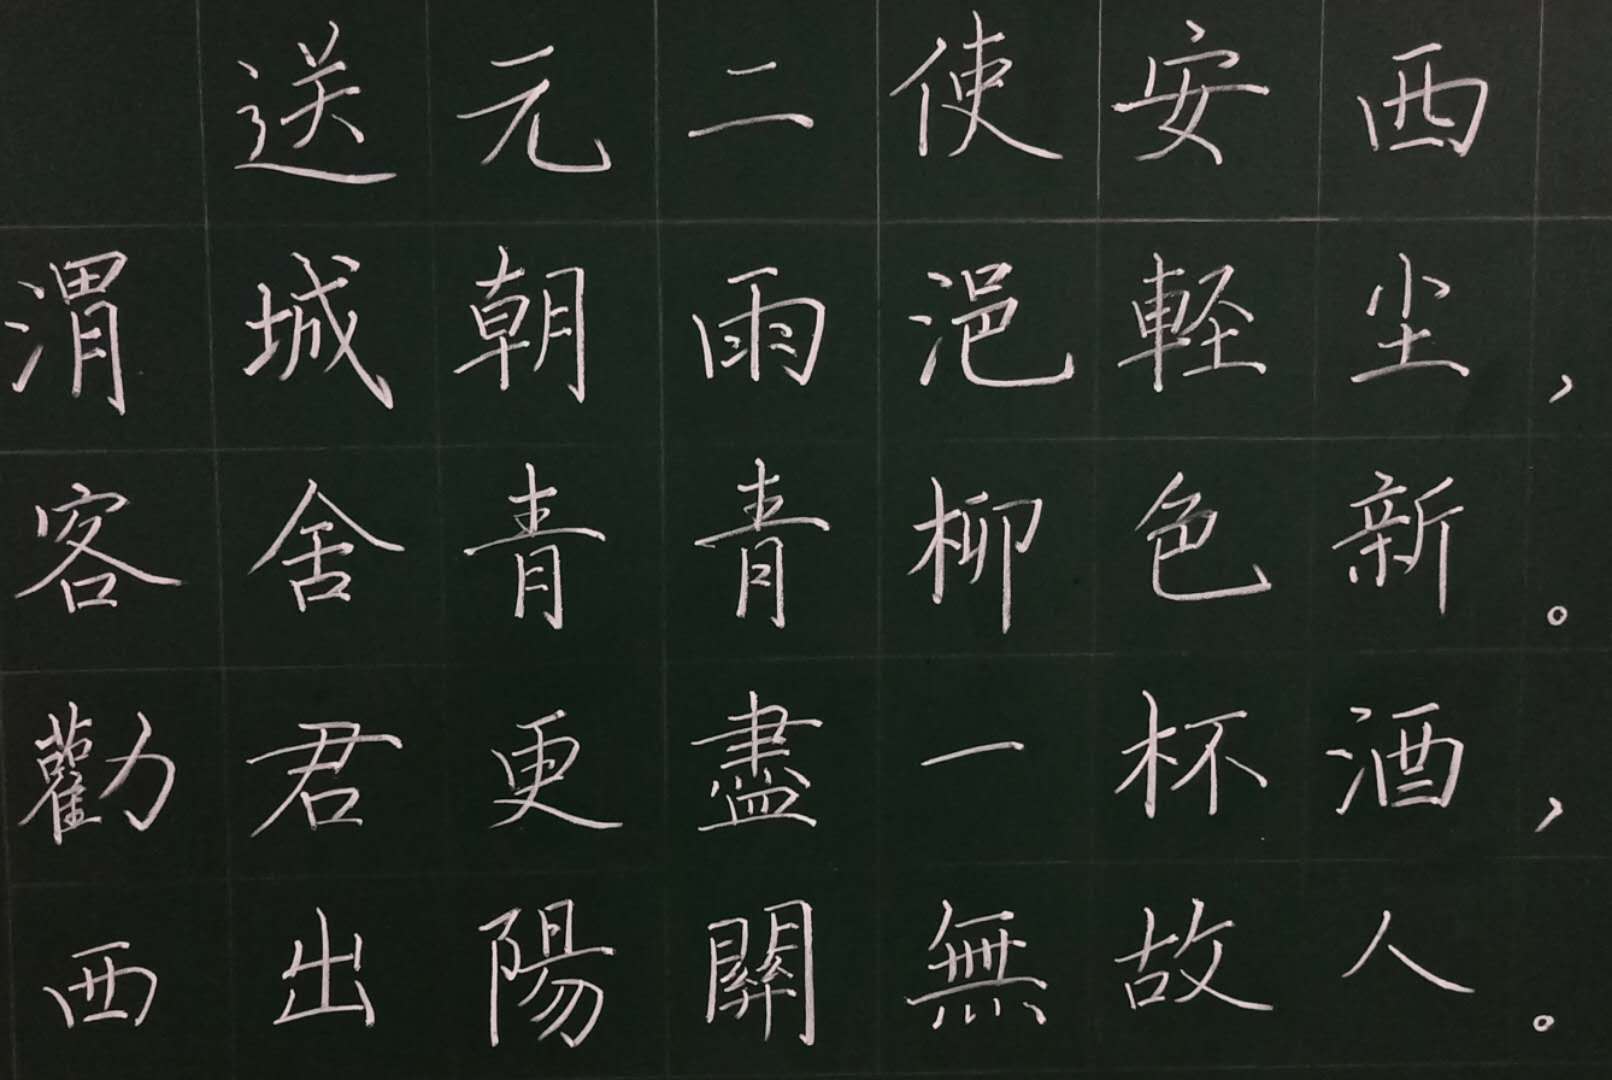 送元二使安西
渭城朝雨浥軽尘，
客舍青青柳色新。
勸君更盡一杯酒，
西出陽關無故人。